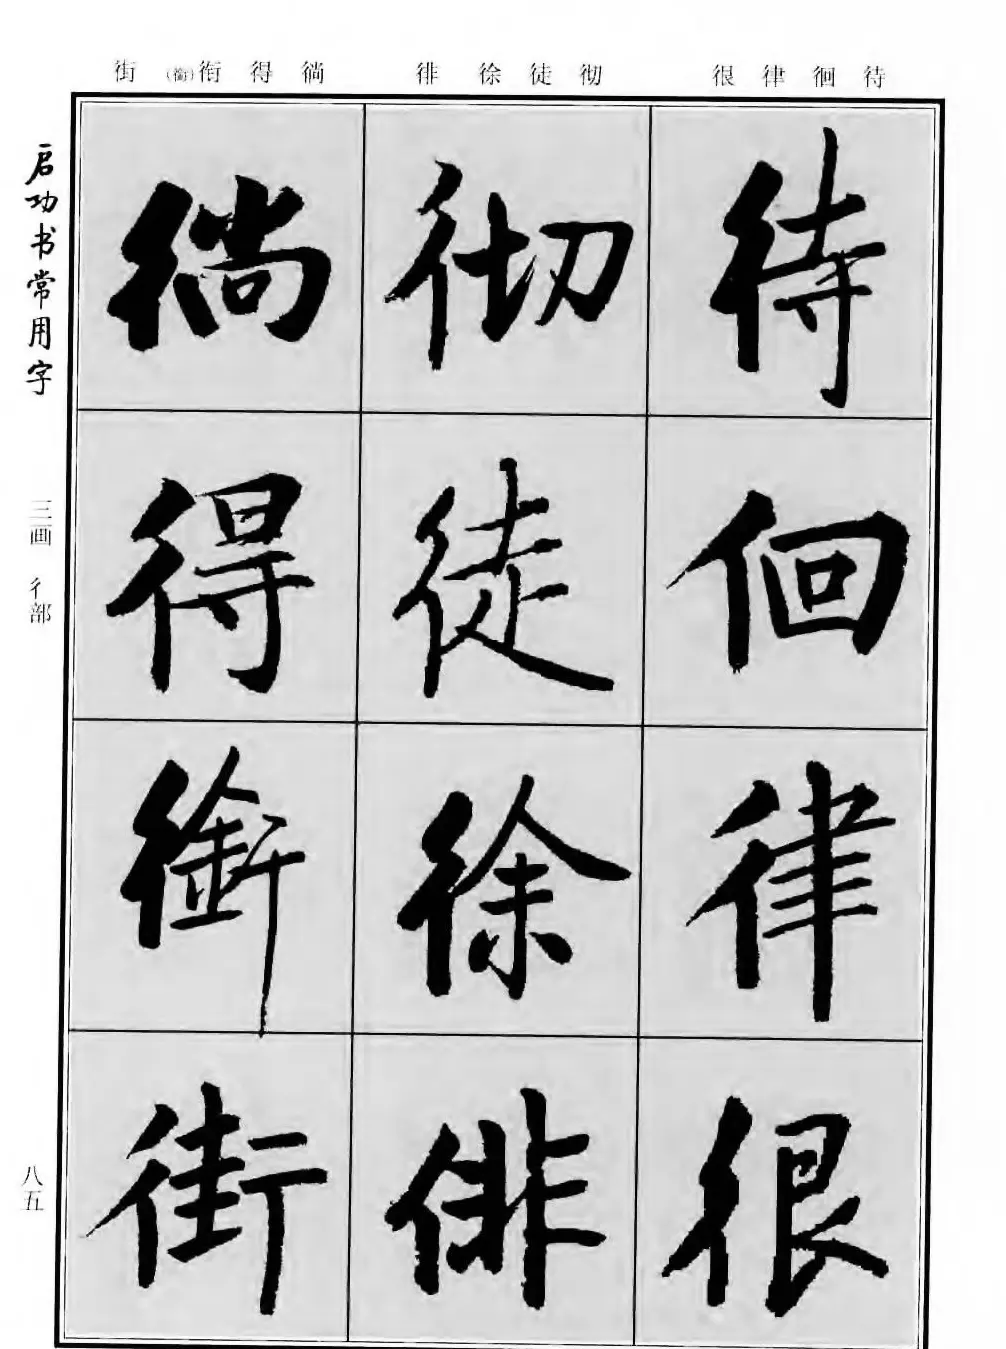 街（銜）衔得徜 徘徐徒彻 很律徊待
启功书常用字
三画 彳部
八五
待
徊
律
很
彻
徒
徐
徘
徜
得
銜
街